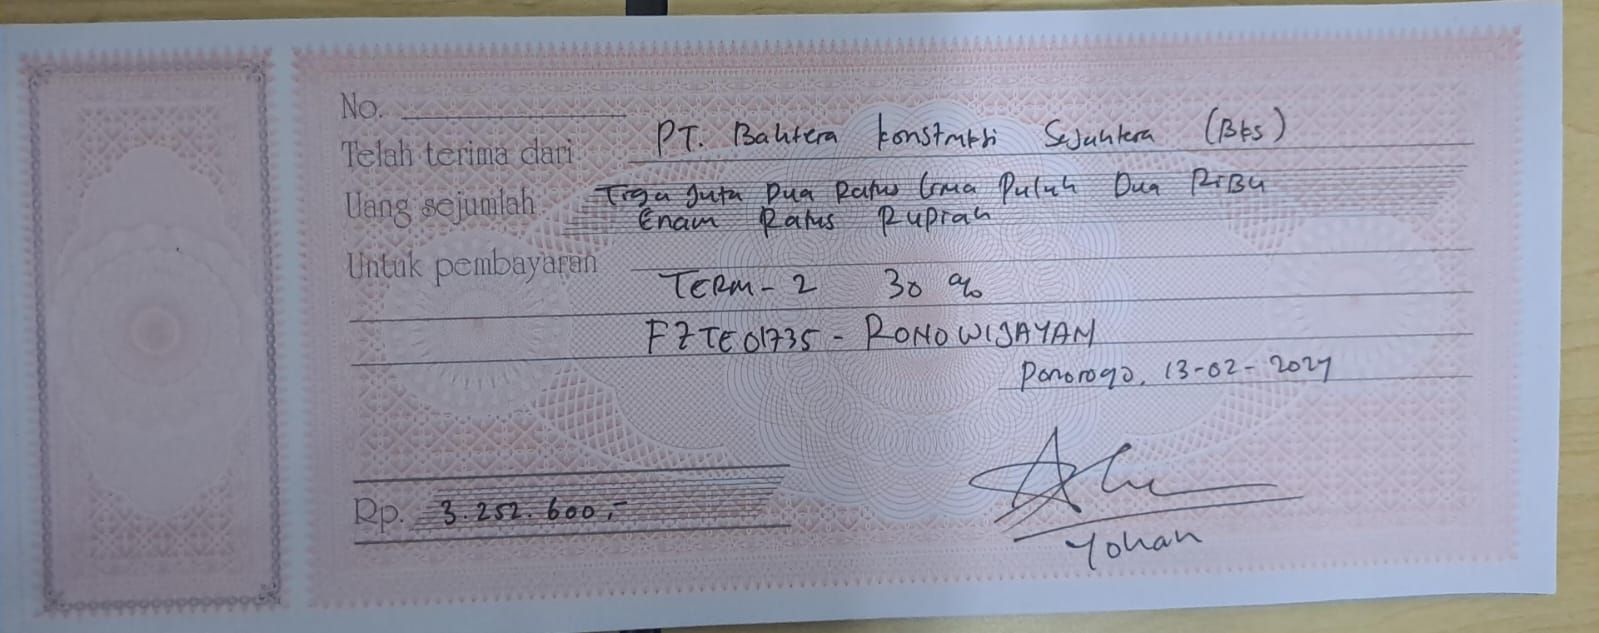 No.
Telah terima dari PT. Bahtera Konstruksi Sejahtera (BKS)
Uang sejumlah Tiga Juta Dua Ratus Lima Puluh Dua RiBu
Enam Ratus Rupiah
Untuk pembayaran
TERM - 2 30 %
FZTE01735 - RONOWIJAYAN
Ponorogo, 13-02-2024
Rp. 3.252.600,-
Yohan